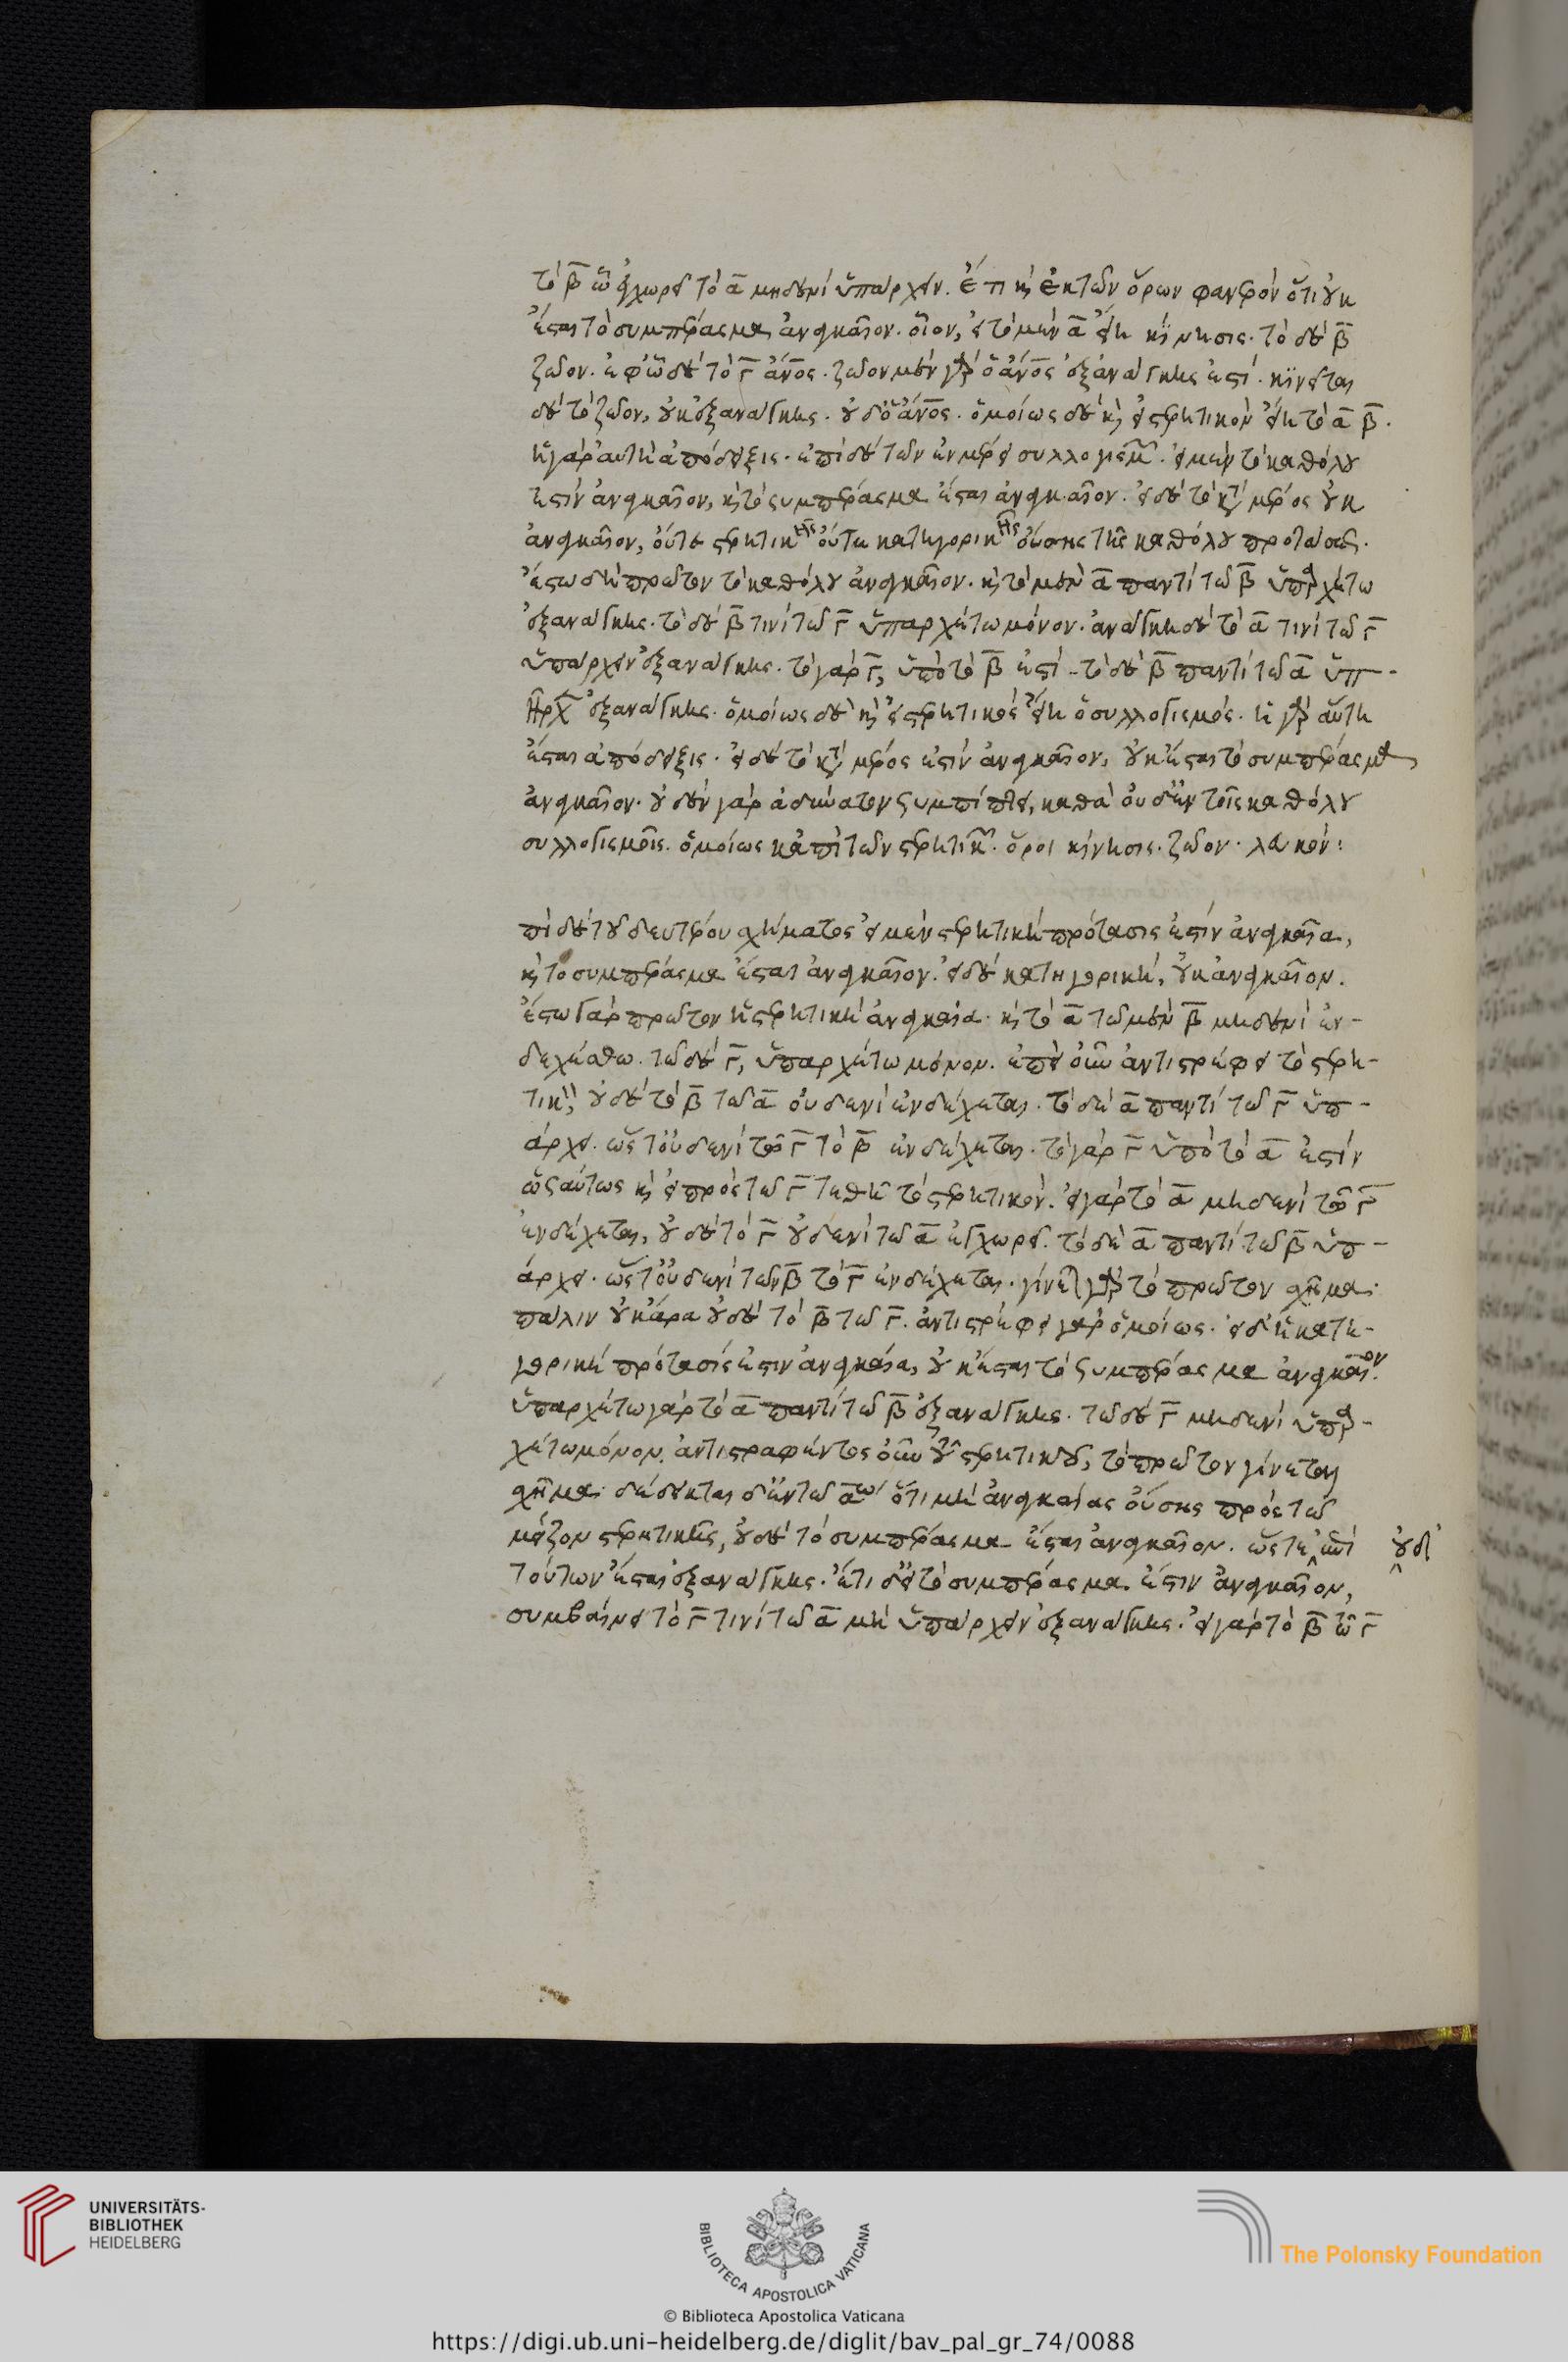 τὸ β̅ ὧ ἐγχωρεῖ τὸ α̅ μηδενὶ ὑπάρχειν. ἔτι κ̀ ἐκ τῶν ὅρων φανερὸν ὅτι οὐκ
ἔσται τὸ συμπέρασμα ἀναγκαῖον. οἷον, εἰ τὸ μὲν α̅ εἴη κίνησις. τὸ δὲ β̅
ζῶον. ἐφ ὧ δὲ τὸ γ̅ ἄν̅ος. ζῶον μὲν γὰρ ὁ ἄν̅ος ἐξ ἀνάγκης ἐστί. κινεῖται
δὲ τὸ ζῶον, οὐκ ἐξ ἀνάγκης. οὐδ ὁ ἄν̅ος. ὁμοίως δὲ κ̀ εἰ στερητικὸν εἴη τὸ α̅ β̅.
ἡ γὰρ αὐτὴ ἀπόδειξις. ἐπὶ δὲ τῶν ἐν μέρει συλλογισμῶν. εἰ μὲν τὸ καθόλου
ἐστὶν ἀναγκαῖον, κ̀ τὸ συμπέρασμα ἔσται ἀναγκαῖον. εἰ δὲ τὸ κατὰ μέρος οὐκ
ἀναγκαῖον, οὔτε στερητικῆς οὔτε κατηγορικῆς οὔσης τῆς καθόλου προτάσεως.
ἔστω δὴ πρῶτον τὸ καθόλου ἀναγκαῖον. κ̀ τὸ μὲν α̅ παντὶ τῶ β̅ ὑπαρχέτω
ἐξ ἀνάγκης. τὸ δὲ β̅ τινὶ τῶ γ̅ ὑπαρχέτω μόνον. ἀνάγκη δὲ τὸ α̅ τινὶ τῶ γ̅
ὑπάρχειν ἐξ ἀνάγκης. τὸ γὰρ γ̅, ὑπὸ τὸ β̅ ἐστί. τὸ δὲ β̅ παντὶ τῶ α̅ ὑπ-
ῆρχεν ἐξ ἀνάγκης. ὁμοίως δὲ κ̀ εἰ στερητικὸς εἴη ὁ συλλογισμός. ἡ γὰρ αὐτὴ
ἔσται ἀπόδειξις. εἰ δὲ τὸ κατὰ μέρος ἐστὶν ἀναγκαῖον, οὐκ ἔσται τὸ συμπέρασμα
ἀναγκαῖον. οὐδὲν γὰρ ἀδύνατον συμπίπτει, καθὰ οὐδ ἐν τοῖς καθόλου
συλλογισμοῖς. ὁμοίως κἀπὶ τῶν στερητικῶν. ὅροι κίνησις. ζῶον. λευκόν:
πὶ δὲ τοῦ δευτέρου σχήματος εἰ μὲν στερητικὴ πρότασίς ἐστιν ἀναγκαῖα,
κ̀ τὸ συμπέρασμα ἔσται ἀναγκαῖον. εἰ δὲ κατηγορική, οὐκ ἀναγκαῖον.
ἔστω γὰρ πρῶτον ἡ στερητικὴ ἀναγκαία. κ̀ τὸ α̅ τῶ μὲν β̅ μηδενὶ ἐν-
δεχέσθω. τῶ δὲ γ̅, ὑπαρχέτω μόνον. ἐπεὶ οὖν ἀντιστρέφει τὸ στερη-
τικὸν, οὐδὲ τὸ β̅ τῶ α̅ οὐδενὶ ἐνδέχεται. τὸ δὲ α̅ παντὶ τῶ γ̅ ὑπ-
άρχει. ὥστ οὐδενὶ τῶ γ̅ τὸ β̅ ἐνδέχεται. τὸ γὰρ γ̅ ὑπὸ τὸ α̅ ἐστίν
ὡσαύτως κ̀ εἰ πρὸς τῶ γ̅ τεθῆ τὸ στερητικόν. εἰ γὰρ τὸ α̅ μηδενὶ τῶ γ̅
ἐνδέχεται, οὐδὲ τὸ γ̅ οὐδενὶ τῶ α̅ ἐγχωρεῖ. τὸ δὲ α̅ παντὶ τῶ β̅ ὑπ-
άρχει. ὥστ οὐδενὶ τῶν β̅ τὸ γ̅ ἐνδέχεται. γίνεται γὰρ τὸ πρῶτον σχῆμα.
πάλιν οὐκ ἄρα οὐδὲ τὸ β̅ τῶ γ̅. ἀντιστρέφει γὰρ ὁμοίως. εἰ δ ἡ κατη-
γορικὴ πρότασίς ἐστιν ἀναγκαία, οὐκ ἔσται τὸ συμπέρασμα ἀναγκαῖον.
ὑπαρχέτω γὰρ τὸ α̅ παντὶ τῶ β̅ ἐξ ἀνάγκης. τῶ δὲ γ̅ μηδενὶ ὑπαρ-
χέτω μόνον. ἀντιστραφέντος οὖν τοῦ στερητικοῦ, τὸ πρῶτον γίνεται
σχῆμα. δέδεικται δ ἐν τῶ α̅ω ὅτι μὴ ἀναγκαίας οὔσης πρὸς τῶ
μεῖζον στερητικῆς, οὐδὲ τὸ συμπέρασμα ἔσται ἀναγκαῖον. ὥστε ἐπὶ οὐδ
τούτων ἔσται ἐξ ἀνάγκης. ἔτι δ εἰ τὸ συμπέρασμα ἐστιν ἀναγκαῖον,
συμβαίνει τὸ γ̅ τινὶ τῶ α̅ μὴ ὑπάρχειν ἐξ ἀνάγκης. εἰ γὰρ τὸ β̅ τῶ γ̅
UNIVERSITÄTS-
BIBLIOTHEK
HEIDELBERG
BIBLIOTECA APOSTOLICA VATICANA
The Polonsky Foundation
© Biblioteca Apostolica Vaticana
https://digi.ub.uni-heidelberg.de/diglit/bav_pal_gr_74/0088